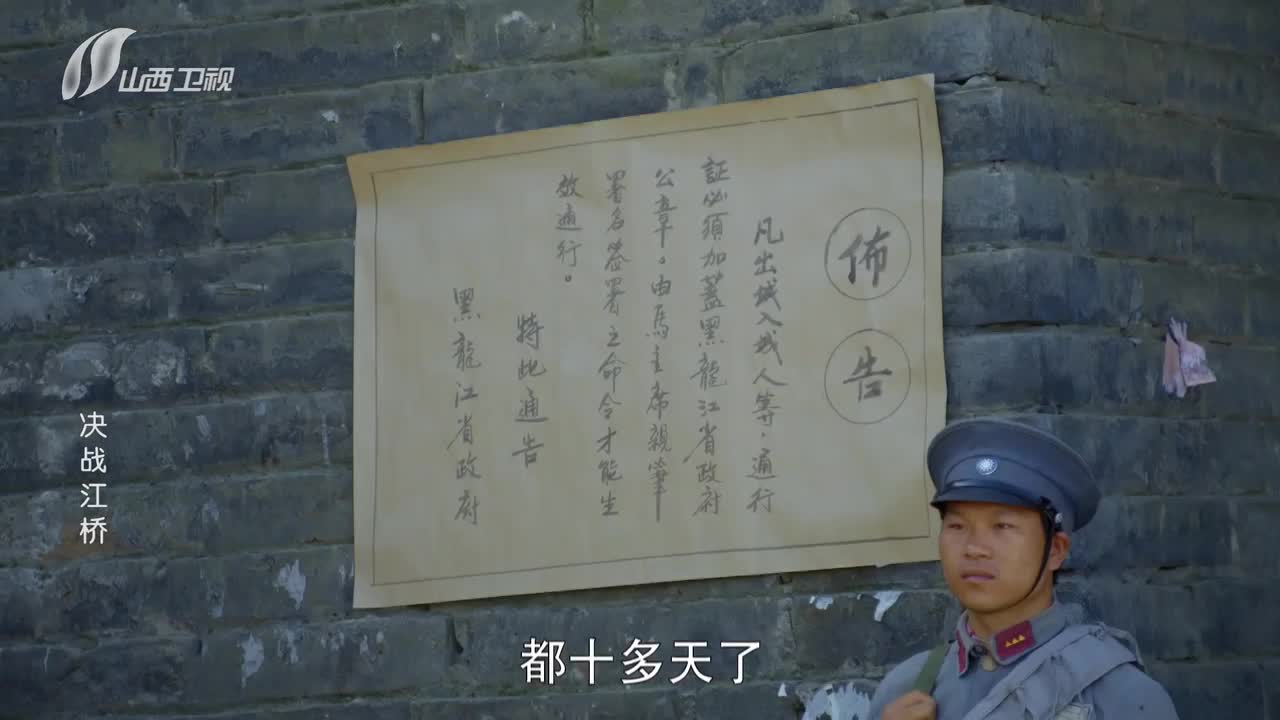 山西卫视
佈告
凡出城入城人等,通行
証必須加蓋黑龍江省政府
公章。由馬主席親筆
署名签署之命令才能生
效通行。
特此通告
黑龍江省政府
决战江桥
都十多天了